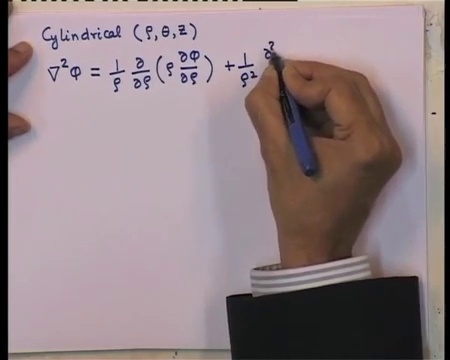 Cylindrical (ρ, θ, z)
∇²φ = 1/ρ ∂/∂ρ (ρ ∂φ/∂ρ) + 1/ρ² ∂²